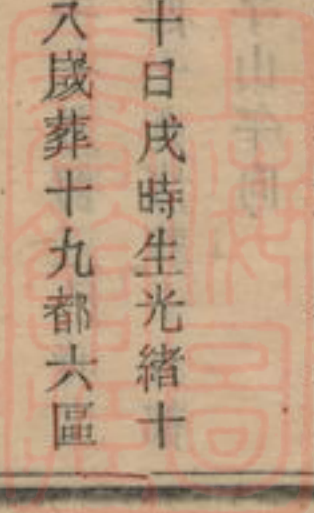 十日戌時生光緒十
八歲葬十九都六區